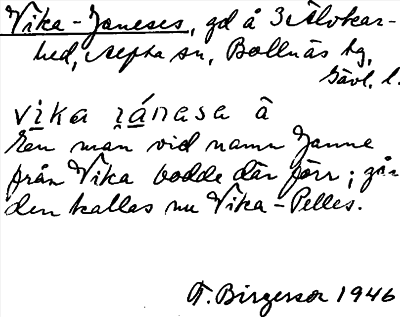 Vika-Janeses, gd å 3 Älvkar-
hed, Alfta sn, Bollnäs tg,
Gävl. l.
vika jánasa å
En man vid namn Janne
från Vika bodde där förr; går-
den kallas nu Vika-Pelles.
T. Birgersor 1946